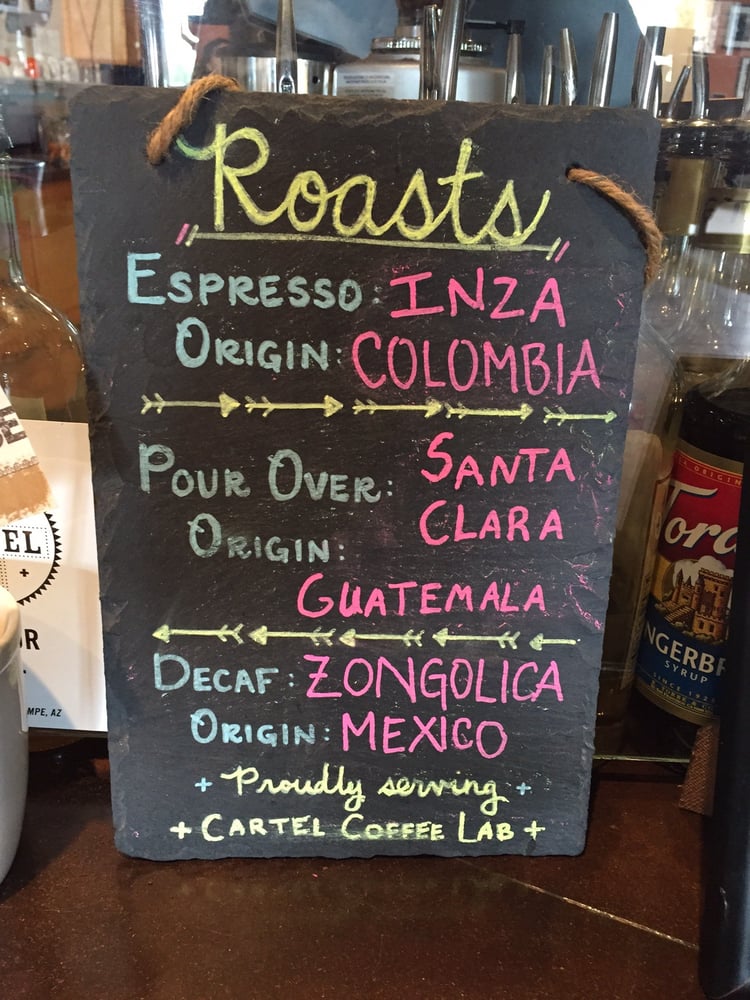 Roasts
ESPRESSO: INZA
ORIGIN: COLOMBIA
POUR OVER: SANTA
CLARA
ORIGIN:
GUATEMALA
DECAF: ZONGOLICA
ORIGIN: MEXICO
+ Proudly serving +
+ CARTEL COFFEE LAB +
EL
MPE, AZ
Tora
NGERBR
SYRUP
SINCE 1925